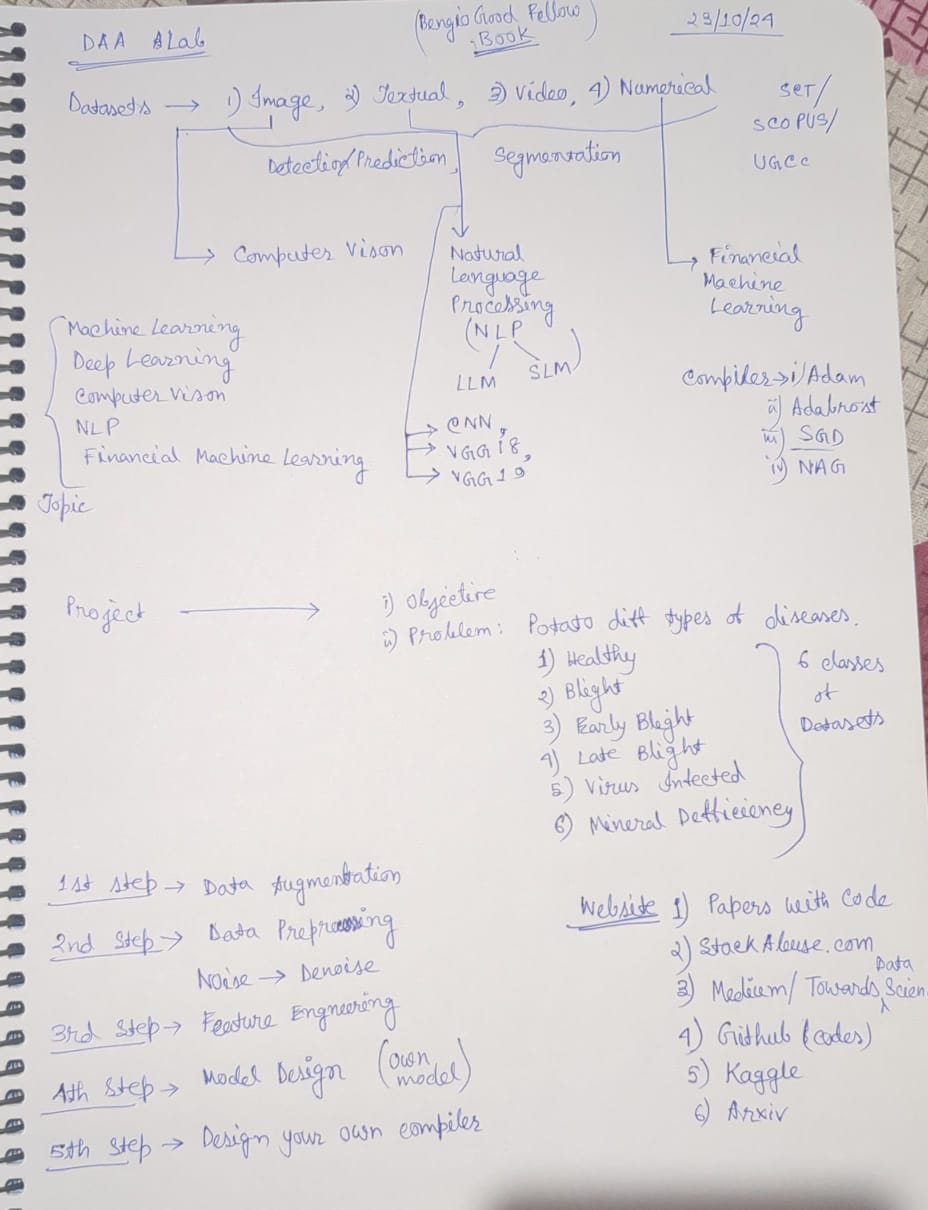 DAA & Lab
(Bengio Good Fellow
Book)
23/10/24
Datasets → 1) Image, 2) Textual, 3) Video, 4) Numerical
SET/
SCOPUS/
UGCC
Detection/Prediction, Segmentation
Computer Vison
Natural
Language
Processing
(NLP
LLM SLM)
Financial
Machine
Learning
Machine Learning
Deep Learning
Computer Vison
NLP
Financial Machine Learning
Topic
→ CNN,
→ VGG 18,
→ VGG 19
Compiler → i) Adam
ii) Adabroist
iii) SGD
iv) NAG
Project → i) Objective
ii) Problem: Potato diff types of diseases.
1) Healthy
2) Blight
3) Early Blight
4) Late Blight
5) Virus Infected
6) Mineral Defficiency
6 classes
of
Datasets
1st step → Data Augmentation
2nd Step → Data Preprocessing
Noise → Denoise
3rd Step → Feature Engneering
4th Step → Model Design (own
model)
5th Step → Design your own compiler
Website 1) Papers with Code
2) Stack Abuse.com
3) Medium/ Towards Data Scien
4) Github (codes)
5) Kaggle
6) Arxiv